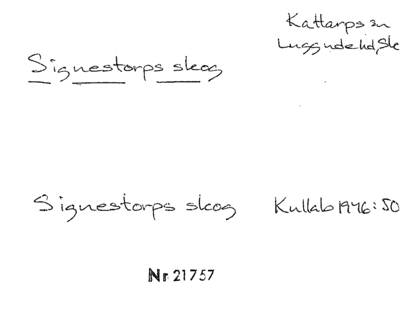 Kattarps sn
Luggude hd, Sk
Signestorps skog
Signestorps skog Kullab 1946:50
Nr 21757